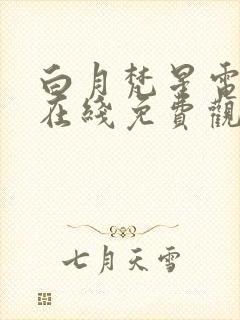 白月梵星電
在綫免費觀
七月天雪